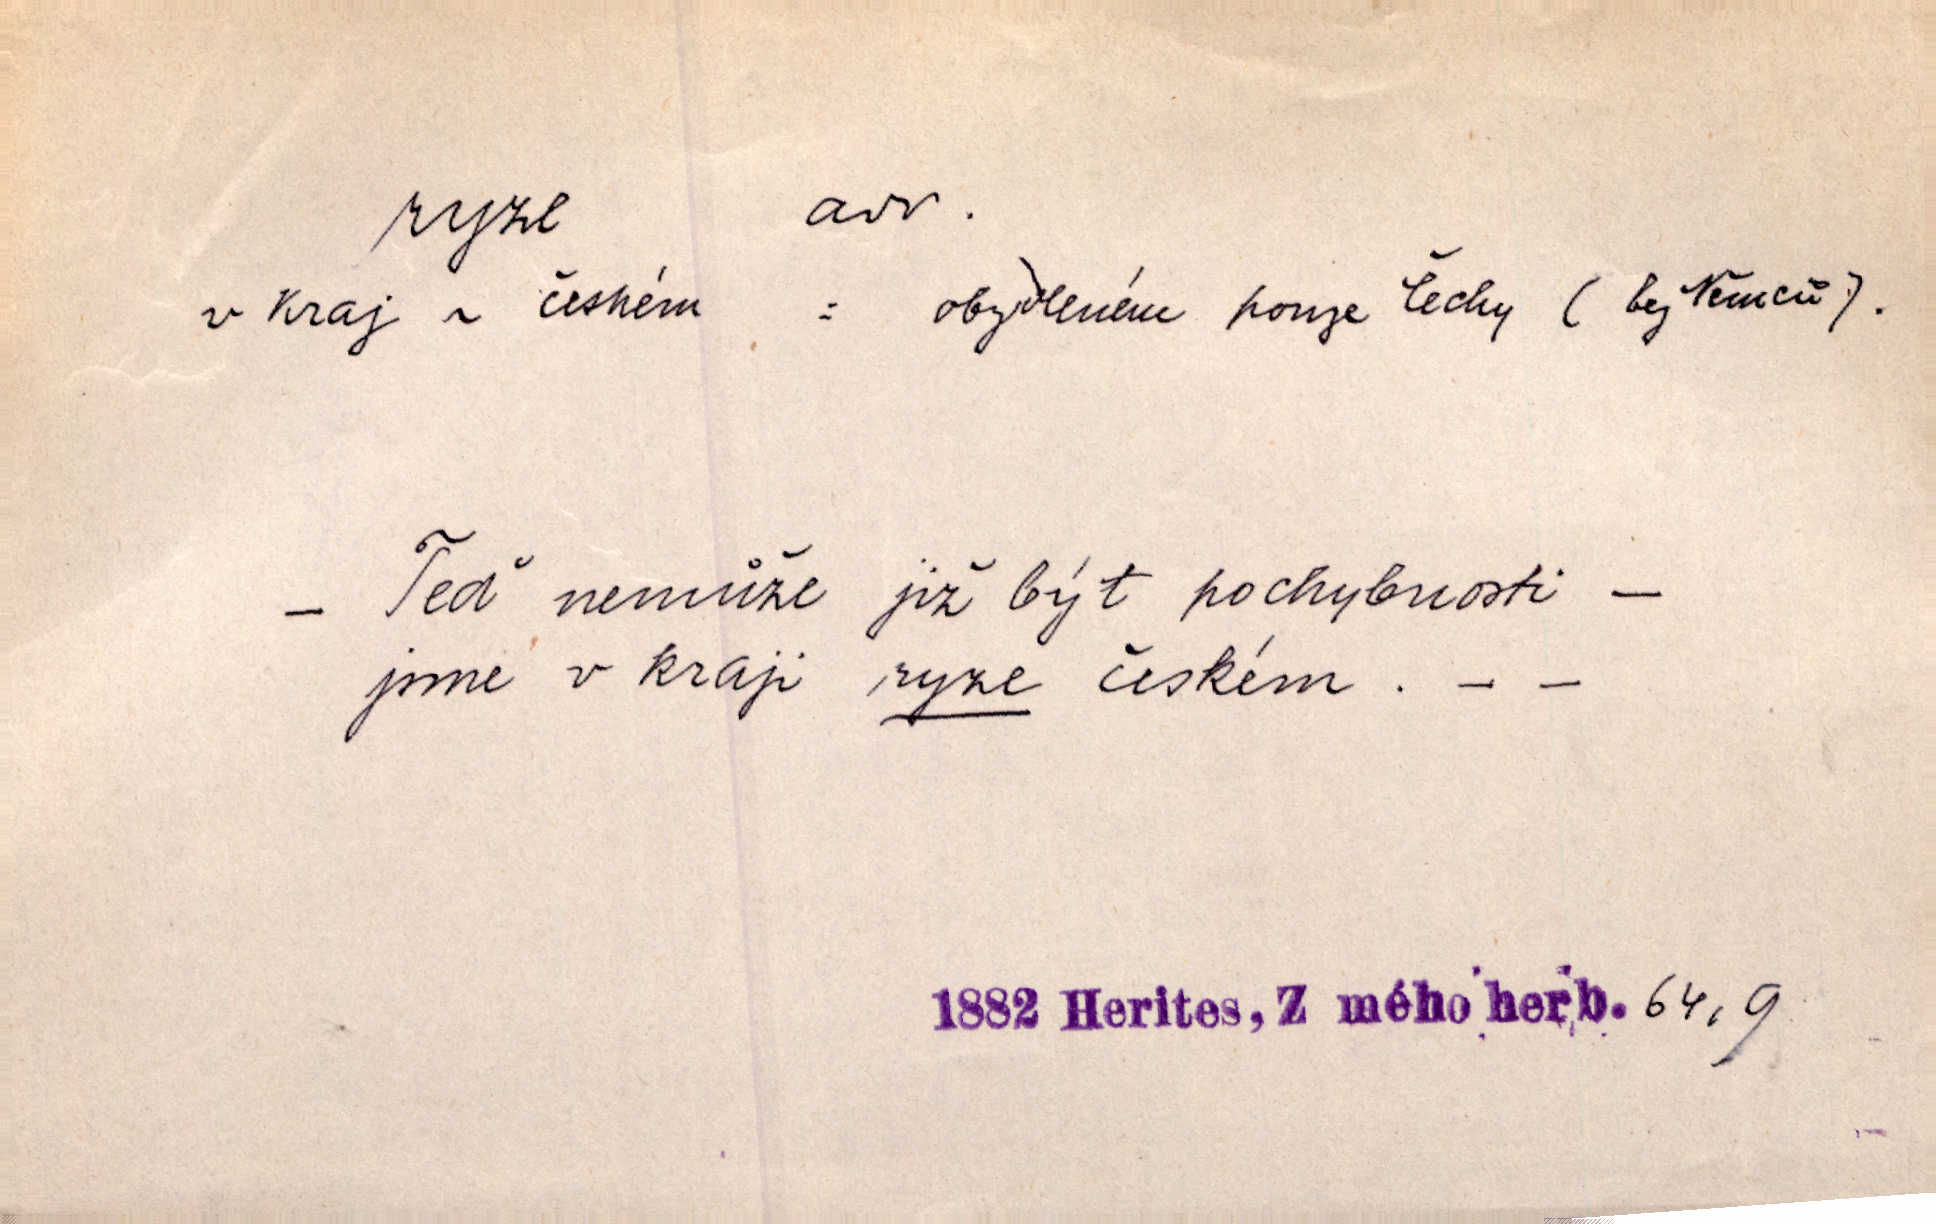 ryze adv.
v kraj ~ českém = obydleném pouze Čechy (bez Němců).
– Teď nemůže již být pochybnosti –
jsme v kraji ryze českém. – –
1882 Herites, Z mého herb. 64, 9